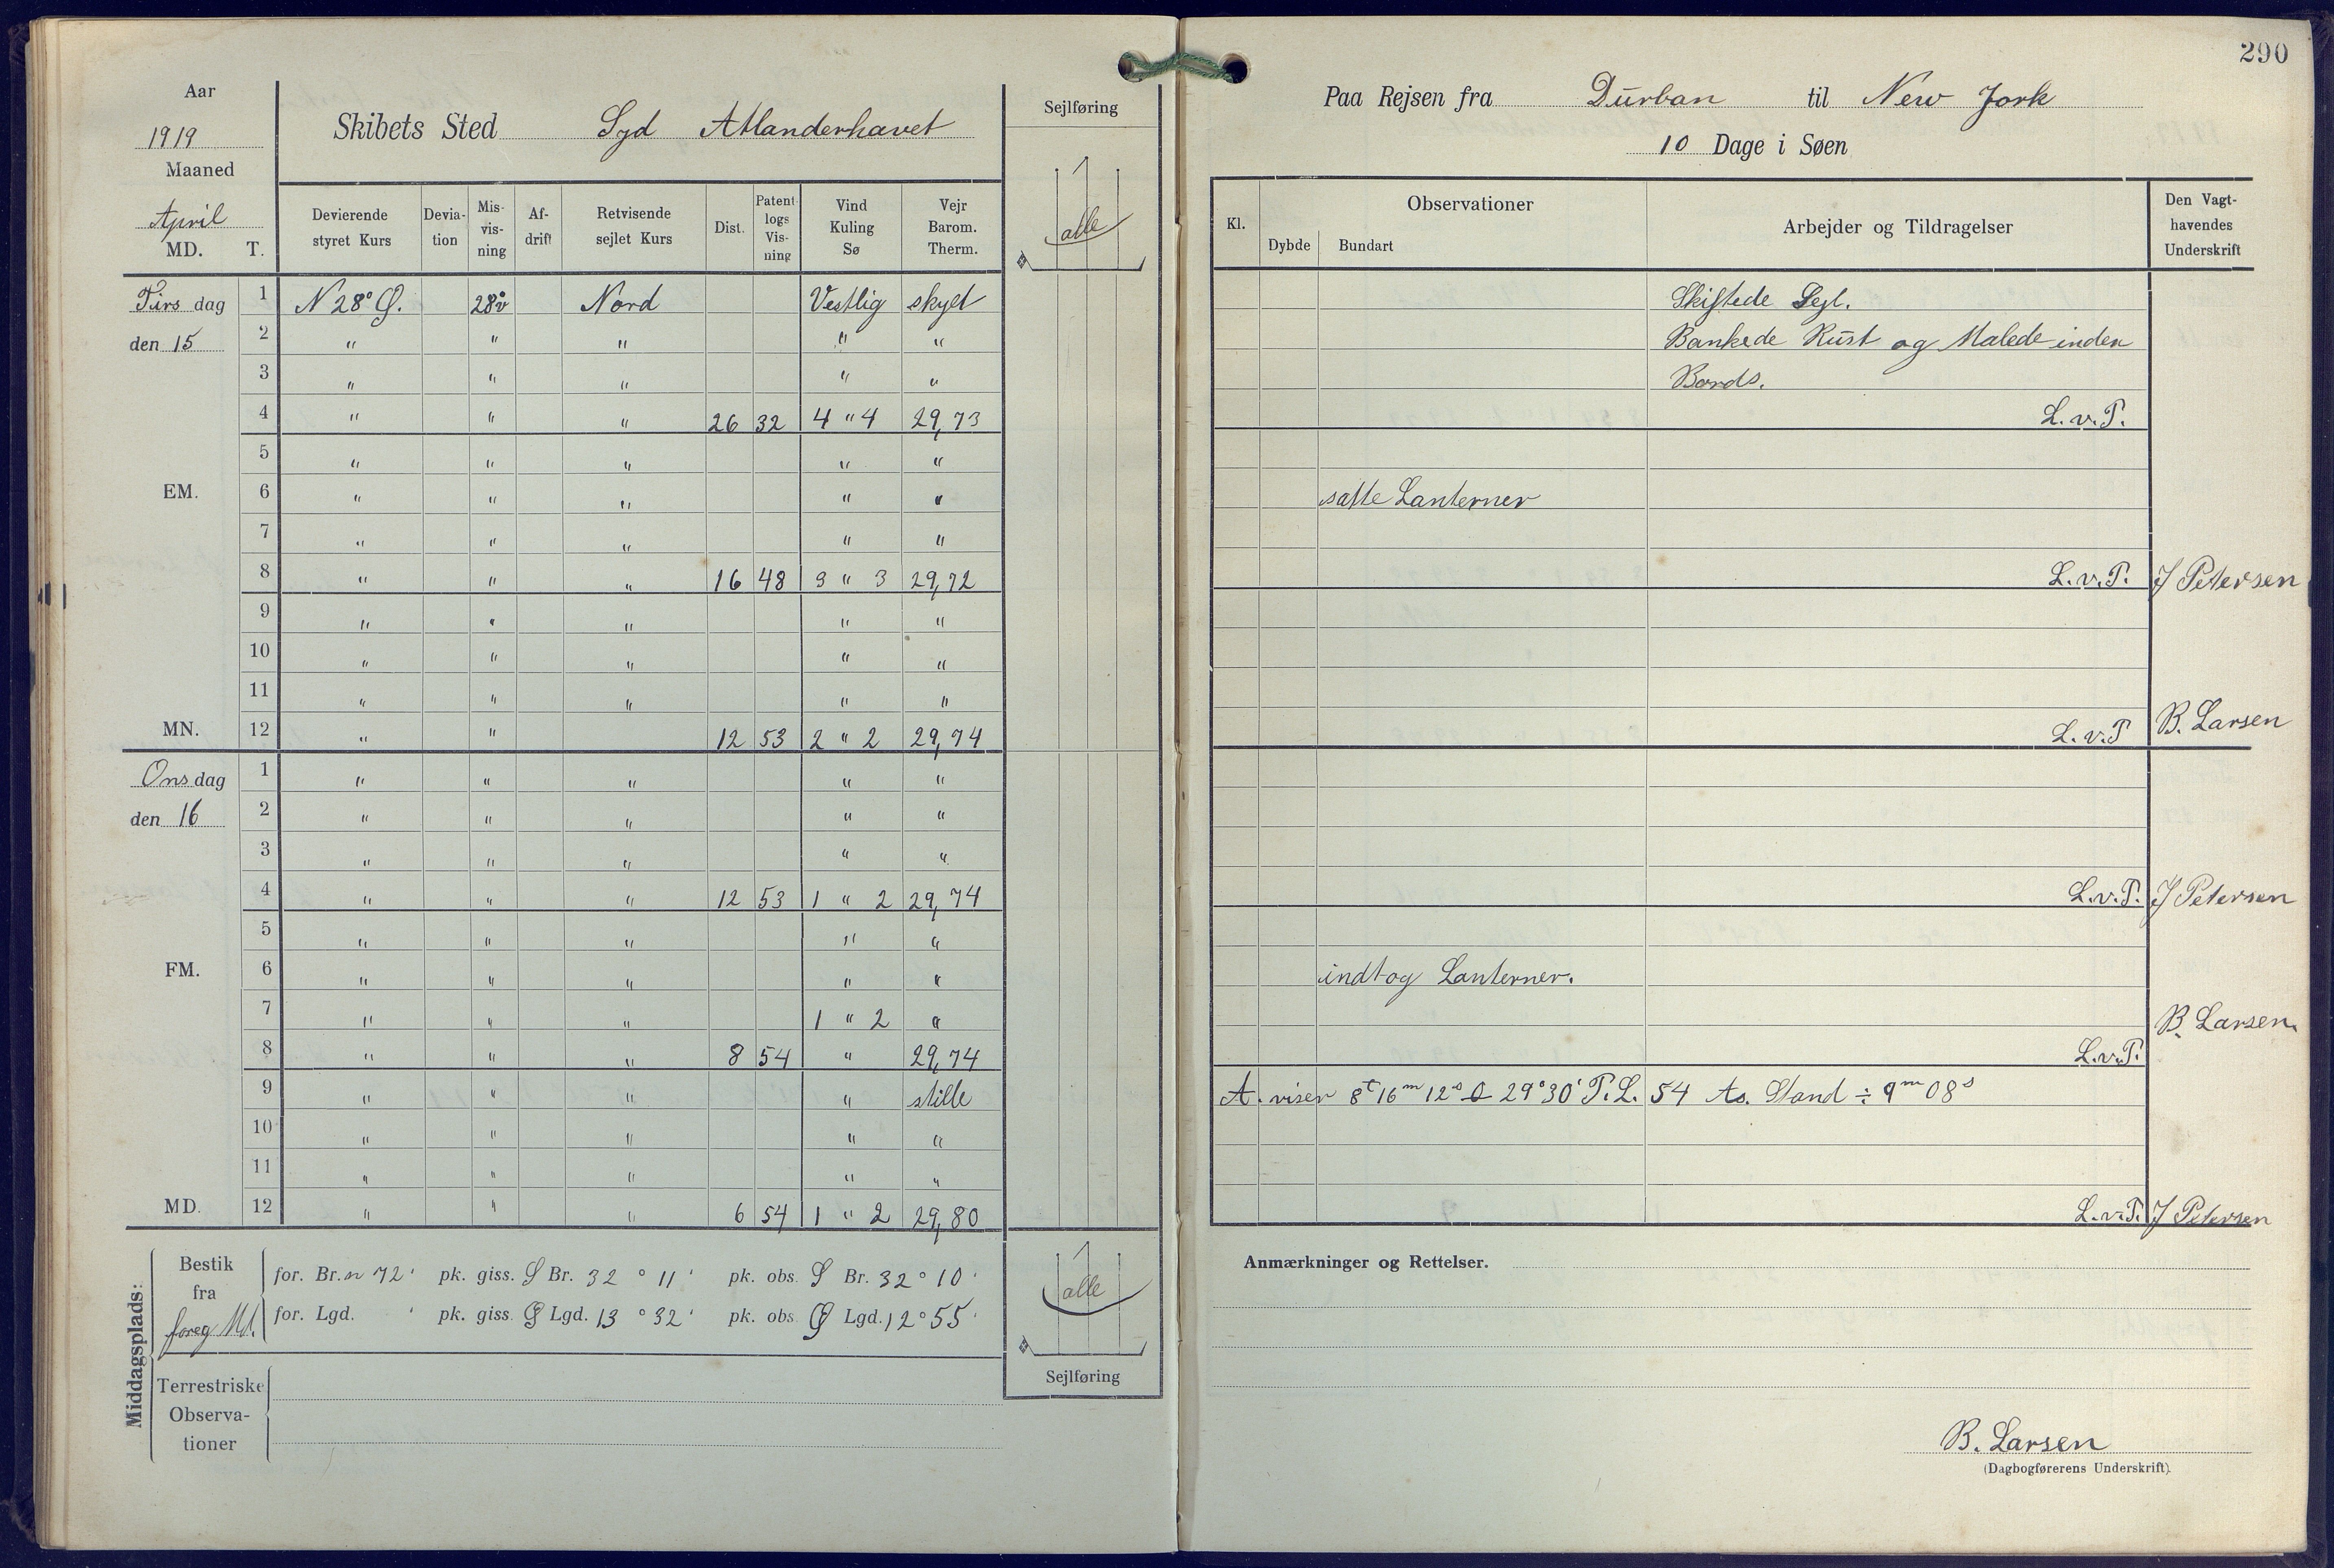 290
Aar
1919
Maaned
April
MD. T.
Skibets Sted Syd Atlanderhavet
Sejlføring
alle
Devierende styret Kurs
Devia-tion
Mis-vis-ning
Af-drift
Retvisende sejlet Kurs
Dist.
Patent logs Vis-ning
Vind Kuling Sø
Vejr Barom. Therm.
Tirs dag 1 N 28° Ø. 28°v Nord Vestlig skyet
den 15 2 " " " " "
3 " " " " "
4 " " " 26 32 4 " 4 29,73
5 " " " " "
EM. 6 " " " " "
7 " " " " "
8 " " " 16 48 3 " 3 29,72
9 " " " " "
10 " " " " "
11 " " " " "
MN. 12 " " 12 53 2 " 2 29,74
Ons dag 1 " " " " "
den 16 2 " " " " "
3 " " " " "
4 " " " 12 53 1 " 2 29,74
5 " " " " "
FM. 6 " " " " "
7 " " " 1 " 2 "
8 " " " 8 54 " 29,74
9 " " " " stille
10 " " " " "
11 " " " " "
MD. 12 " " " 6 54 1 " 2 29,80
Middagsplads:
Bestik fra foreg Md.
for. Br. n 72' pk. giss. S Br. 32 ° 11' pk. obs. S Br. 32 ° 10'
for. Lgd. ' pk. giss. Ø Lgd. 13 ° 32' pk. obs. Ø Lgd. 12 ° 55'
Terrestriske
Observa-
tioner
alle
Sejlføring
Paa Rejsen fra Durban til New Jork
10 Dage i Søen
Kl.
Observationer
Dybde Bundart
Arbejder og Tildragelser
Den Vagt-
havendes
Underskrift
Skiftede Sejl.
Bankede Rust og Malede inden
Bords.
L.v.P.
satte Lanterner
L.v.P. J Petersen
L.v.P B. Larsen
L.v.P. J Petersen
indtog Lanterner.
B. Larsen.
L.v.P.
A. viser 8t 16m 12s 29°30' P.L. 54 As. Stand ÷ 9m 08s
L.v.P. J Petersen
Anmærkninger og Rettelser.
B. Larsen
(Dagbogførerens Underskrift).